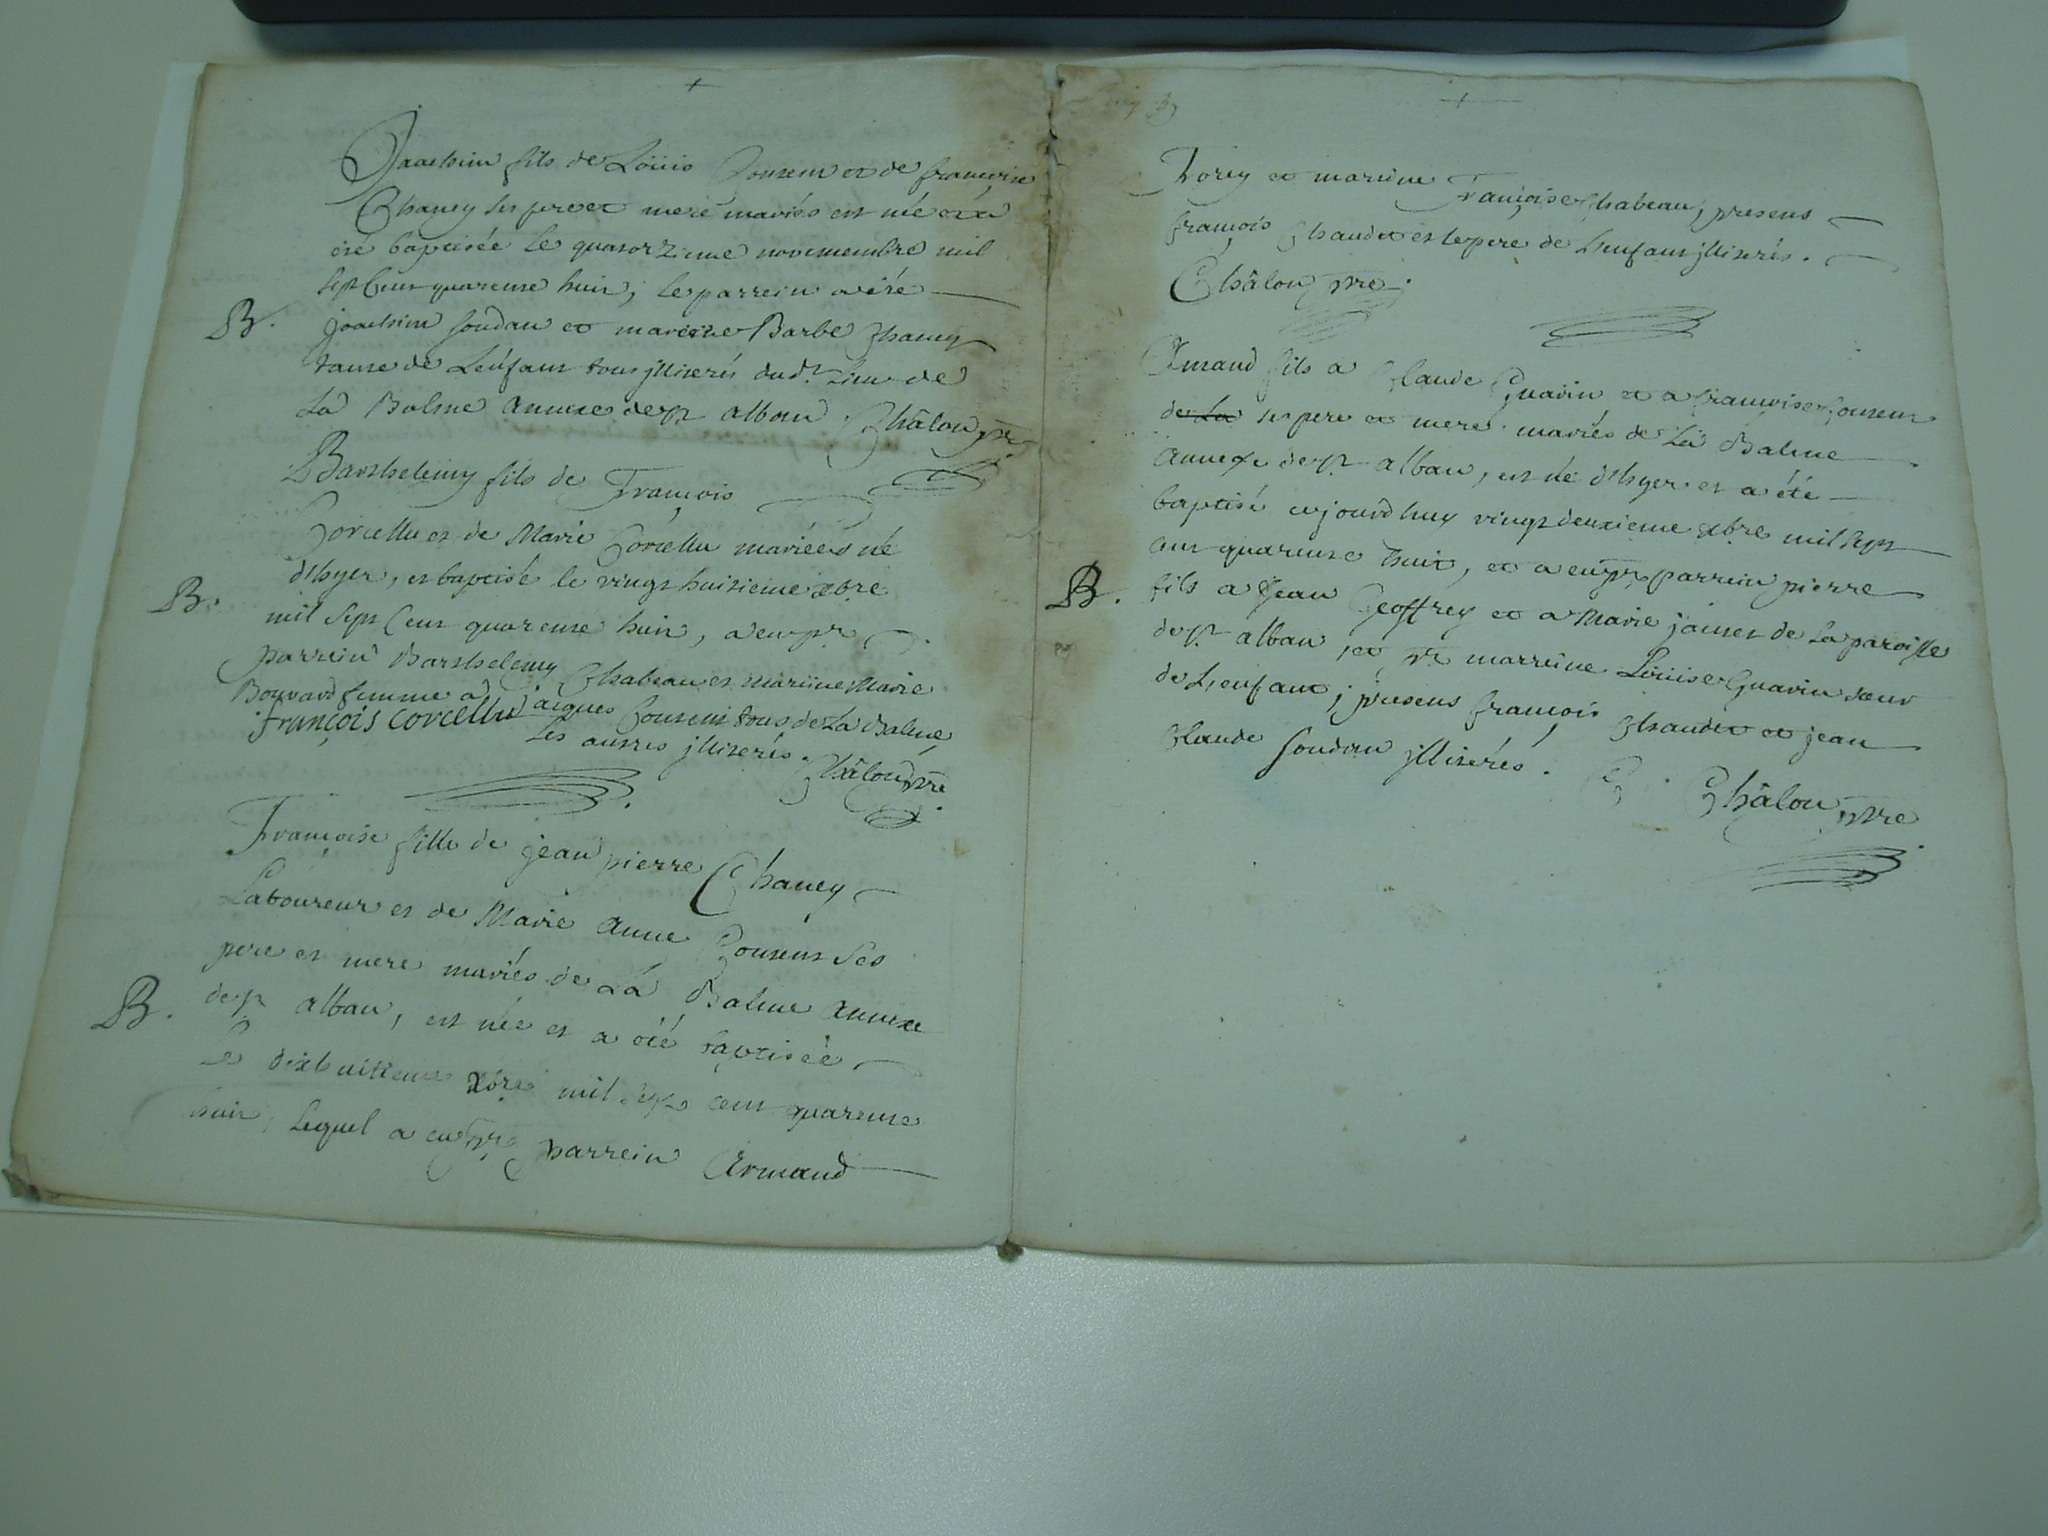 Joachim fils de Loüis Consens et de françoise
Chaney ses pere et mere mariés est née et a
été baptisée le quatorzieme novemembre mil
sept Cent quarente huit, le parrein a été
B.
joachim soudan et mareine Barbe Chaney
tante de L'enfant tous jlliterés dudt. Lieu de
La Balme annexe de st alban. Châlon ptre
Barthelemy fils de François
Corcellu et de Marie Corcellu mariées né
d'hyer, et baptisé le vingt huitieme xbre
B.
mil sept Cent quarente huit, a eu pr
parrein Barthelemy Chabeau et mareine Marie
Bouvard femme a jaques Consent tous de La Balme,
françois corcellu
Les autres jlliterés. Châlon ptre
Françoise fille de jean pierre Chaney
Laboureur et de Marie Anne Consent ses
pere et mere mariés de La Balme annexe
B.
de st alban, est née et a été baptisée
Le dixhuitieme xbre mil sept cent quarente
huit, Lequel a eu pr parrein Armand
+
+
Torey et mareine Françoise Chabeau, presens
françois Chaudet et le pere de L'enfant jlliterés.
Châlon ptre.
Amand fils a Claude Guarin et a françoise Consent
de La ses pere et mere mariés de La Balme
annexe de st alban, est né d'hyer et a été
baptisé aujourd'huy vingt deuxieme xbre mil sept
cent quarente huit, et a eu pr parrein pierre
B.
fils a Jean Geoffrey et a Marie jainet de La paroisse
de st alban, et pr marreine Loüise Guarin sœur
de L'enfant; presens françois Chaudet et jean
Claude soudan jlliterés.
Châlon ptre